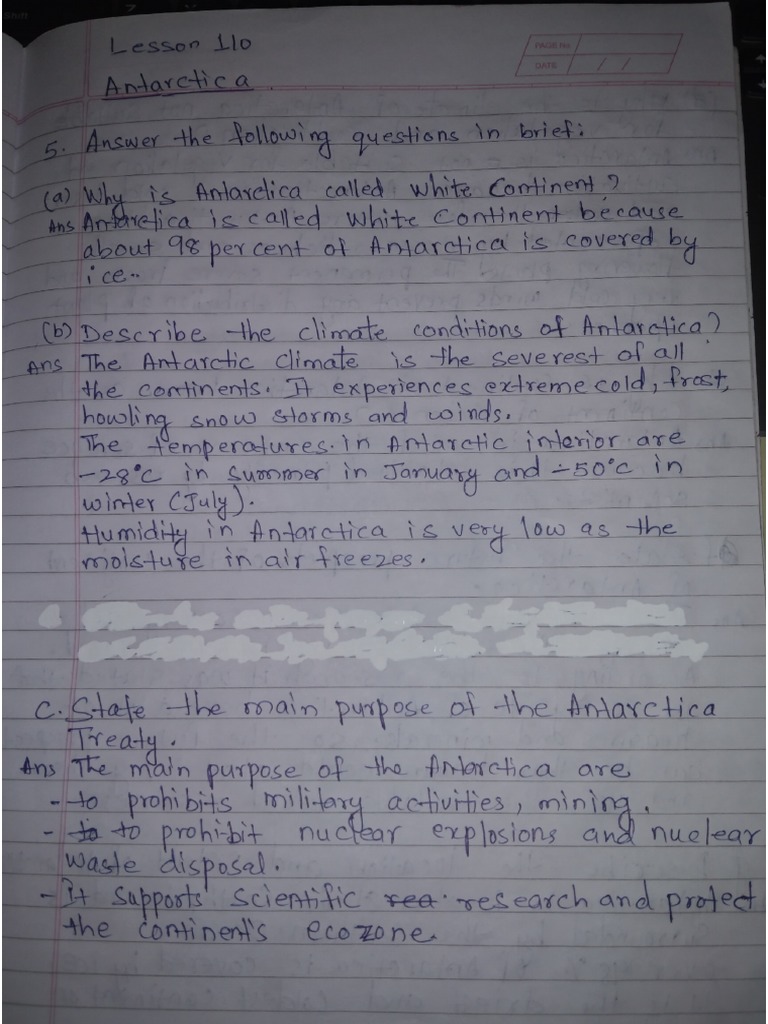 Lesson 110
PAGE No
DATE / /
Antarctica
5. Answer the following questions in brief:
(a) Why is Antarctica called White Continent?
Ans Antarctica is called White Continent because
about 98 per cent of Antarctica is covered by
ice..
(b) Describe the climate conditions of Antarctica?
Ans The Antarctic climate is the severest of all
the continents. It experiences extreme cold, frost,
howling snow storms and winds.
The temperatures in Antarctic interior are
-28°C in Summer in January and -50°C in
winter (July).
Humidity in Antarctica is very low as the
moisture in air freezes.
C. State the main purpose of the Antarctica
Treaty.
Ans The main purpose of the Antarctica are
- to prohibits military activities, mining.
- to to prohibit nuclear explosions and nuclear
waste disposal.
- It supports scientific research and protect
the continent's ecozone